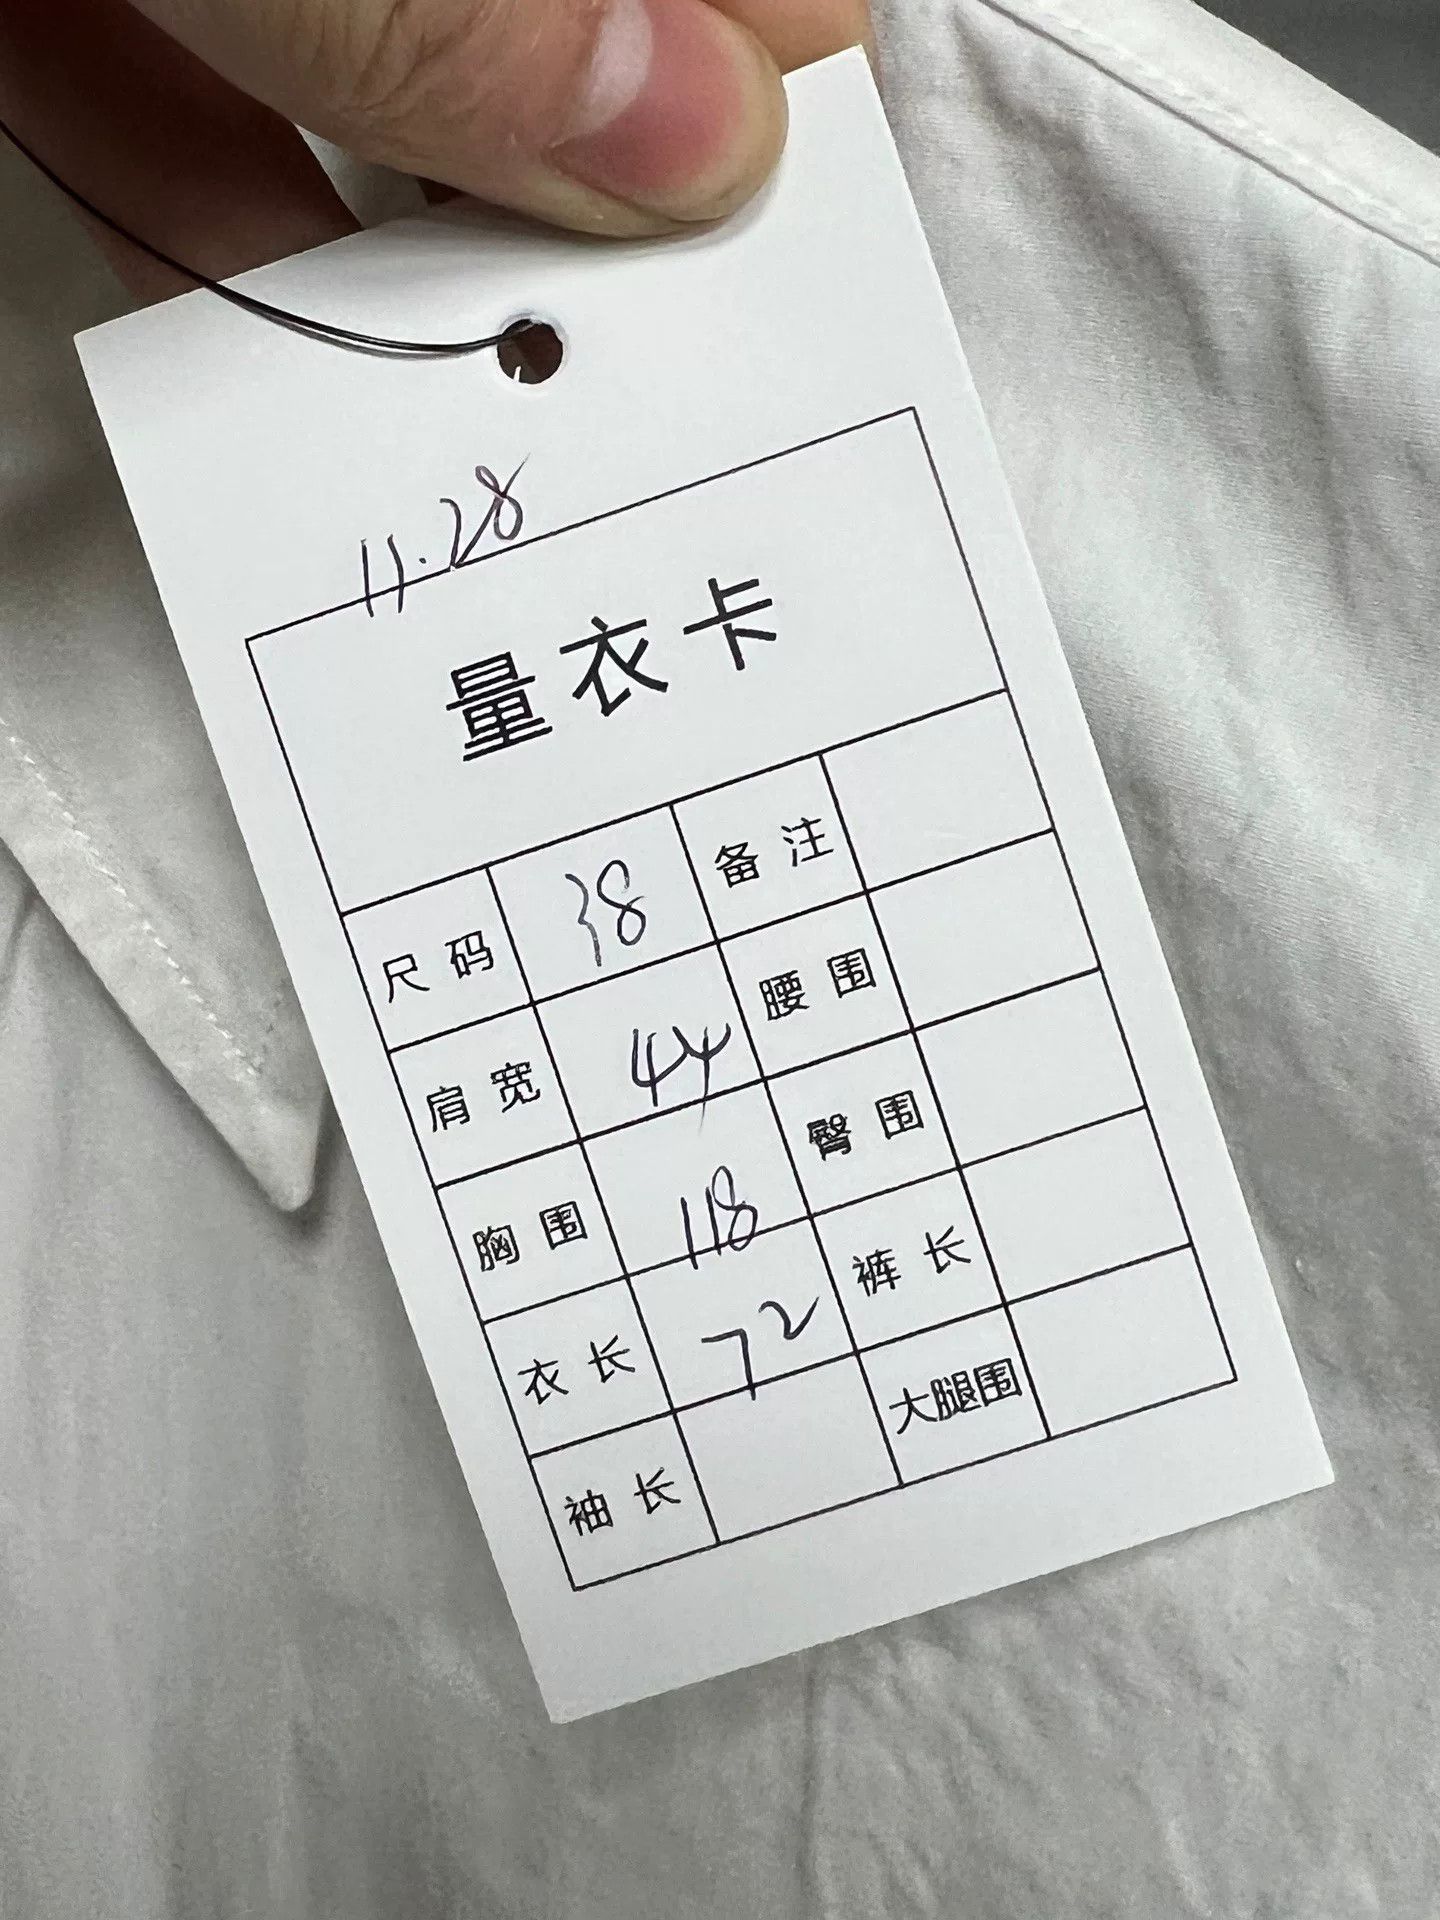 11.28
量衣卡
尺码 38 备注
肩宽 44 腰围
胸围 118 臀围
衣长 72 裤长
袖长 大腿围